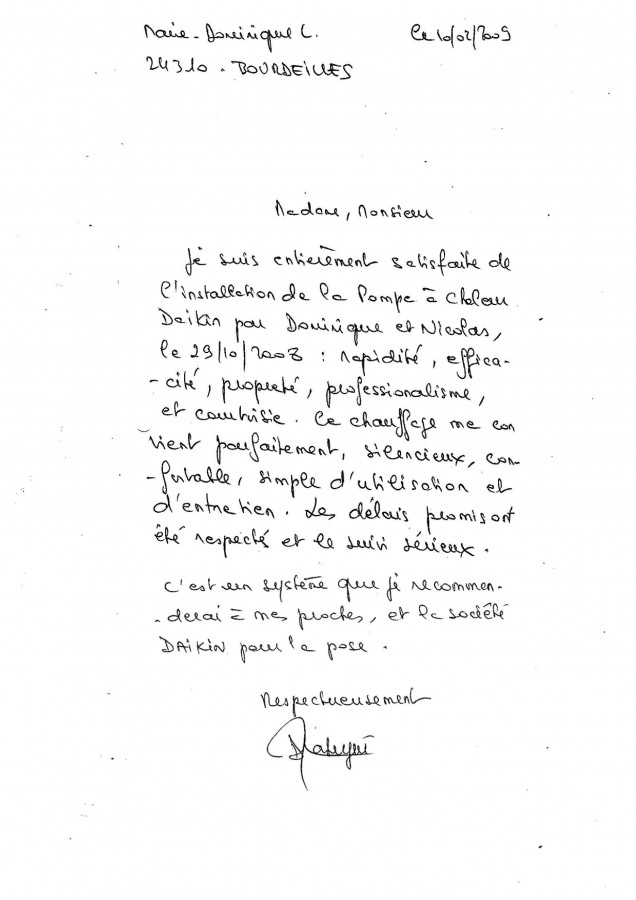 Marie-Dominique C. Le 10/02/2009
24310 - BOURDEILLES
Madame, Monsieur
Je suis entièrement satisfaite de
l'installation de la Pompe à Chaleur
Daikin par Dominique et Nicolas,
le 29/10/2008 : rapidité, effica-
-cité, propreté, professionalisme,
et courtoisie. Ce chauffage me con
vient parfaitement, silencieux, con-
-fortable, simple d'utilisation et
d'entretien. Les délais promis ont
été respecté et le suivi sérieux.
C'est un système que je recommen-
-derai à mes proches, et la société
DAIKIN pour la pose.
Respectueusement